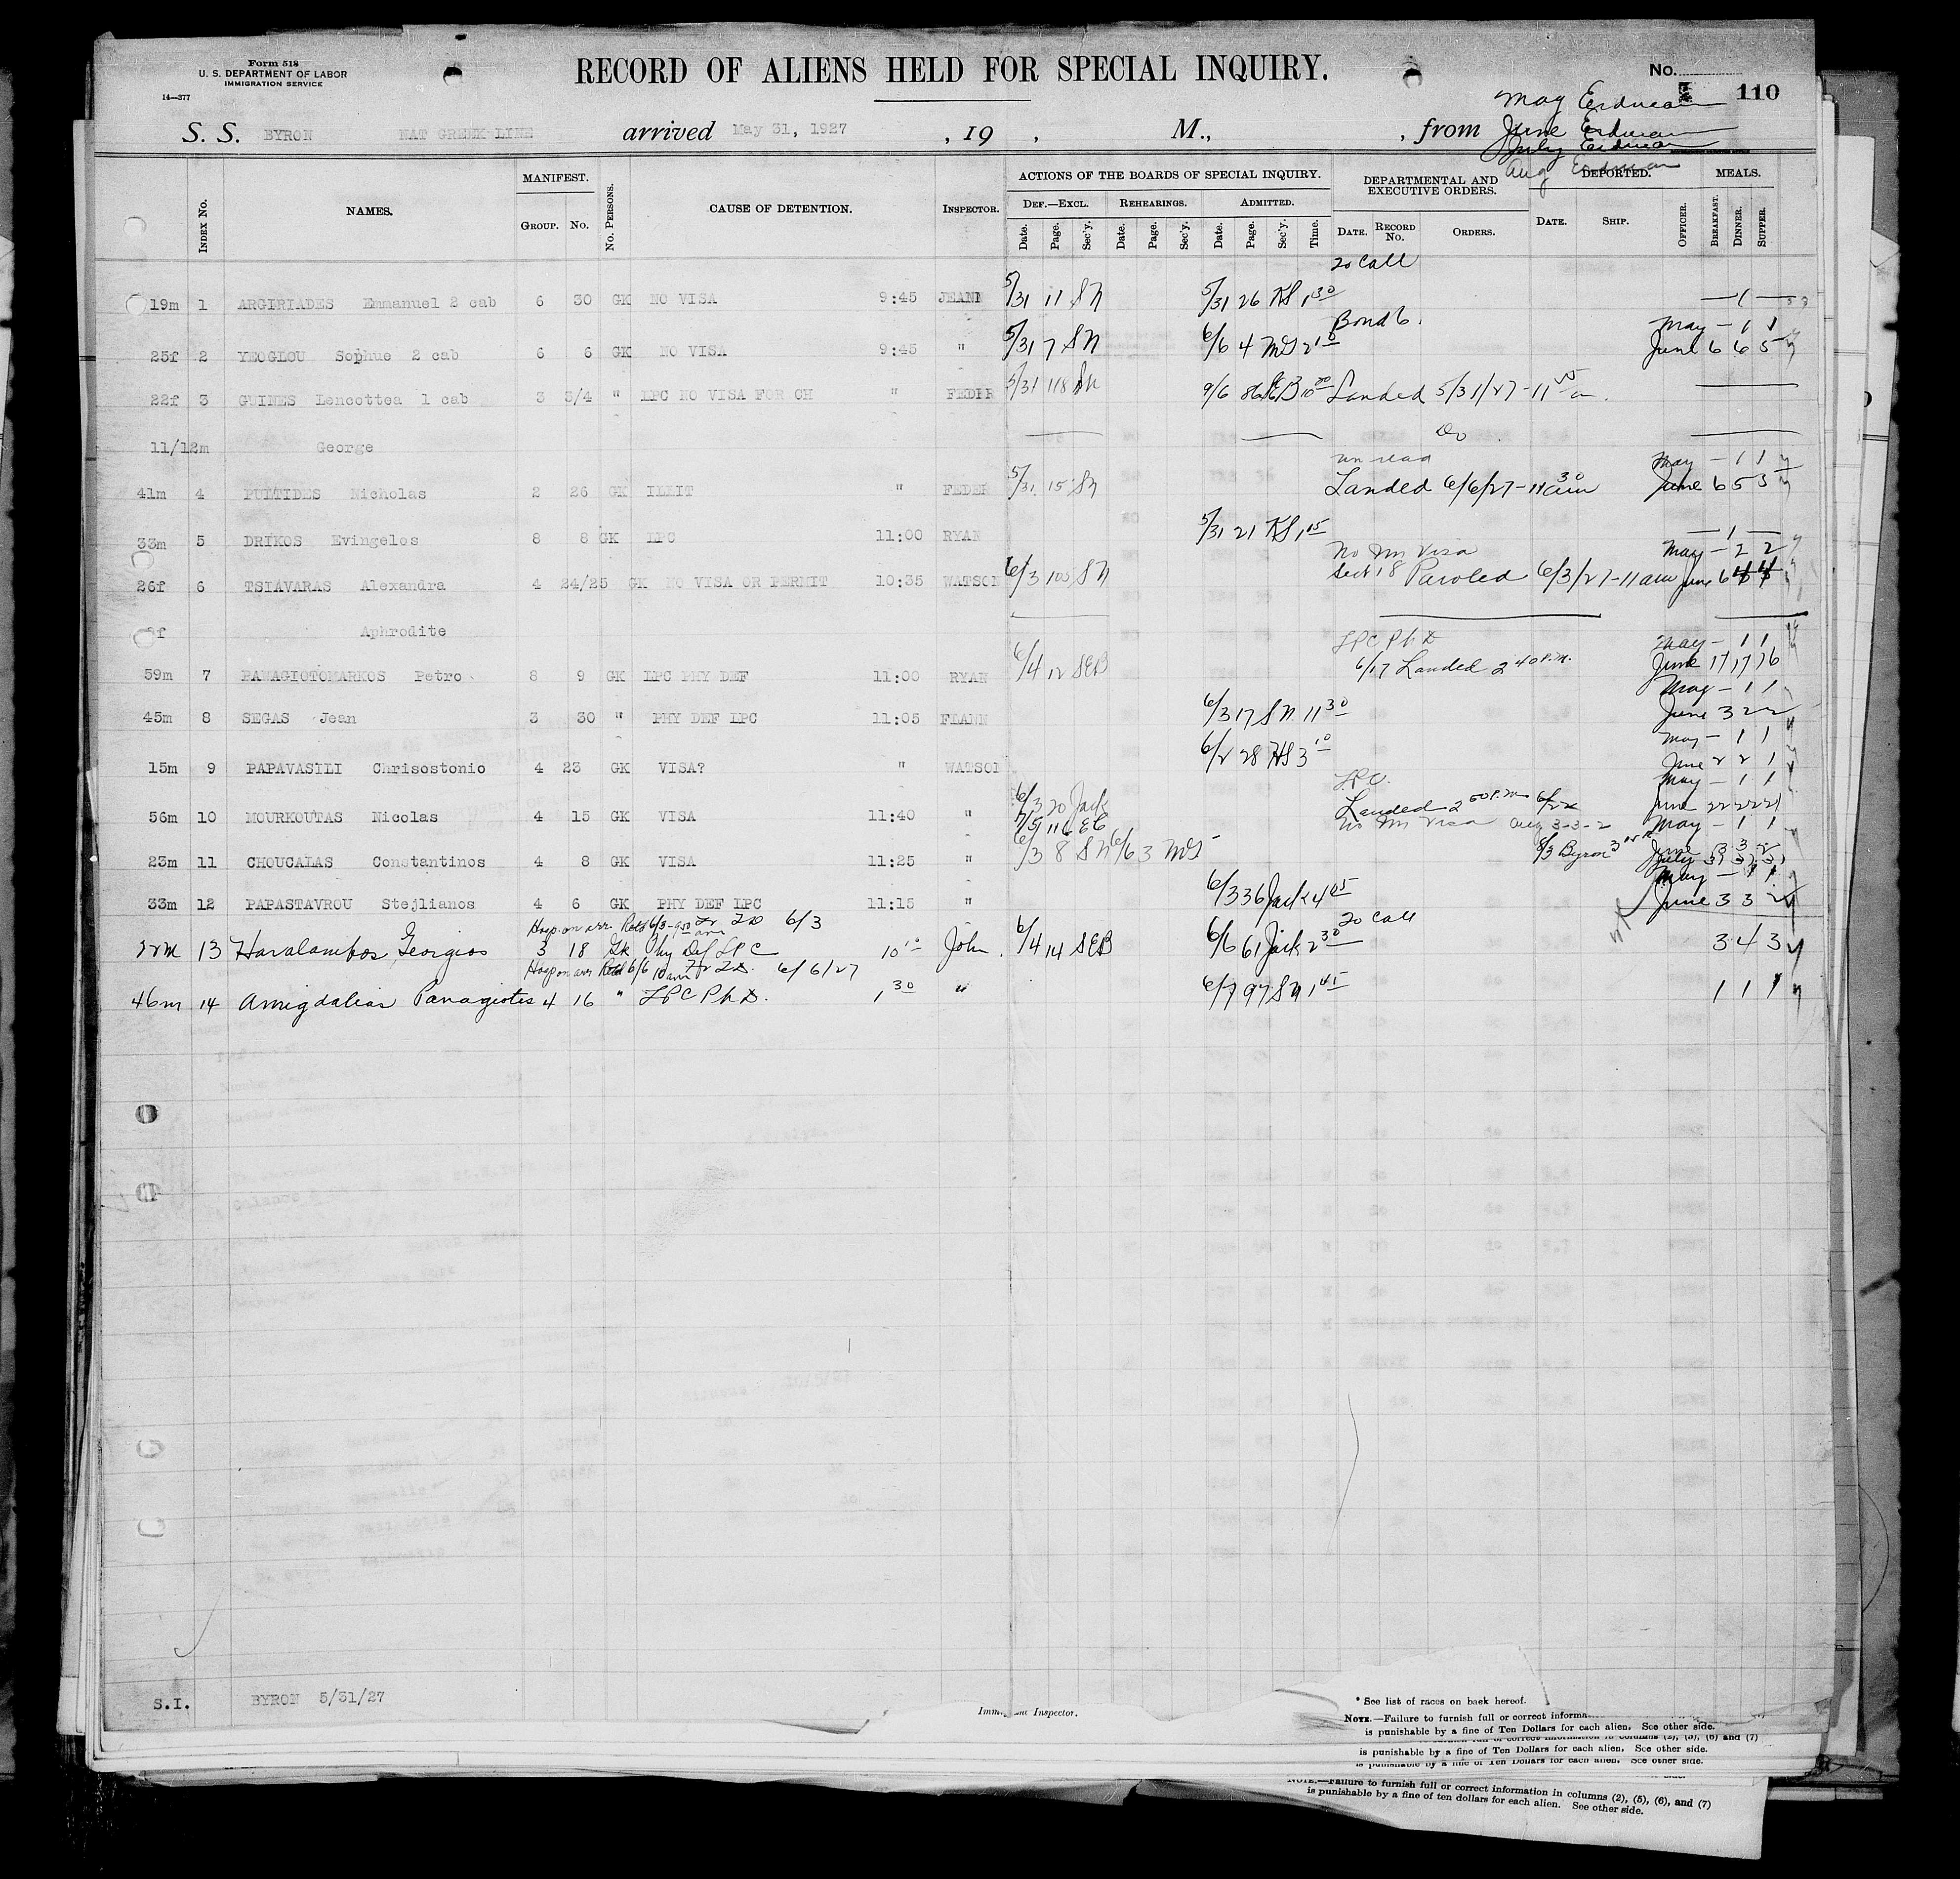 Form 518
U. S. DEPARTMENT OF LABOR
IMMIGRATION SERVICE
14—377
RECORD OF ALIENS HELD FOR SPECIAL INQUIRY.
No. 110
May Erdman
S. S. BYRON NAT GREEK LINE arrived May 31, 1927 , 19 , M., , from June Erdman
July Erdman
Aug Erdman
INDEX No. NAMES. MANIFEST. GROUP. No. No. PERSONS. CAUSE OF DETENTION. INSPECTOR. ACTIONS OF THE BOARDS OF SPECIAL INQUIRY. DEF.—EXCL. Date. Page. Sec'y. REHEARINGS. Date. Page. Sec'y. ADMITTED. Date. Page. Sec'y. Time. DEPARTMENTAL AND EXECUTIVE ORDERS. DATE. RECORD No. ORDERS. DEPORTED. DATE. SHIP. OFFICER. MEALS. BREAKFAST. DINNER. SUPPER.
to Call
19m 1 ARGIRIADES Emmanuel 2 cab 6 30 GK NO VISA 9:45 JEANN 5/31 11 SN 5/31 26 KS 1 30 — 1 —
Bond 6. May — 1 1
25f 2 YEOGLOU Sophue 2 cab 6 6 GK NO VISA 9:45 " 5/31 7 SN 6/6 4 June 6 6 5
22f 3 GUINES Lencottea 1 cab 3 3/4 " LPC NO VISA FOR CH " FEDER 5/31 118 SN Landed 5/31/27 - 11
11/12m George Do
May — 1 1
41m 4 Nicholas 2 26 GK ILLIT " FEDER 5/31 15 SN Landed 6/6/27 - 11 30 am June 6 5 3
33m 5 DRIKOS Evingelos 8 8 GK LPC 11:00 RYAN 5/31 21 KS 1 15 — 1 —
No Im Visa May — 2 2
26f 6 TSIAVARAS Alexandra 4 24/25 GK NO VISA OR PERMIT 10:35 WATSON 6/3 103 SN Sect 18 Paroled 6/3/27 - 11 am June 6 4 4
Aphrodite
LPC Ph D May — 1 1
59m 7 PANAGIOTOMARKOS Petro 8 9 GK LPC PHY DEF 11:00 RYAN 6/4 12 SEB 6/17 Landed 2 40 P.M. June 17 17 16
May — 1 1
45m 8 SEGAS Jean 3 30 " PHY DEF LPC 11:05 FLANN 6/3 17 SN 11 30 June 3 2 2
May — 1 1
15m 9 PAPAVASILI Chrisostonio 4 23 GK VISA? " WATSON 6/2 28 KS 3 10 June 2 2 1
LPC. May — 1 1
56m 10 MOURKOUTAS Nicolas 4 15 GK VISA 11:40 " 6/3 20 Jack Landed 2 50 P.M. June 22 22 21
No Im Visa Aug 3-3-2 May — 1 1
23m 11 CHOUCALAS Constantinos 4 8 GK VISA 11:25 " 6/3 8 SN 6/6 3 8/3 Byron July 31 31 31
May — 1 1
33m 12 PAPASTAVROU Stejlianos 4 6 GK PHY DEF LPC 11:15 " 6/3 36 Jack 4 05 June 3 3 2
Hosp on arr. 6/3 to Call
13 Haralambos Georgios 3 18 Gk Phy Def LPC 10 10 John. 6/4 14 SEB 6/6 61 Jack 2 30 3 4 3
Hosp on arr 6/6 10 am 6/6/27
46m 14 Amigdalias Panagiotis 4 16 " LPC Ph D. 1 30 " 6/7 97 SN 1 45 1 1 1
S.I. BYRON 5/31/27
Inspector.
* See list of races on back hereof.
NOTE.—Failure to furnish full or correct
is punishable by a fine of Ten Dollars for each alien. See other side.
is punishable by a fine of Ten Dollars for each alien. See other side.
is punishable by a fine of Ten Dollars for each alien. See other side.
NOTE.—Failure to furnish full or correct information in columns (2), (5), (6), and (7)
is punishable by a fine of ten dollars for each alien. See other side.